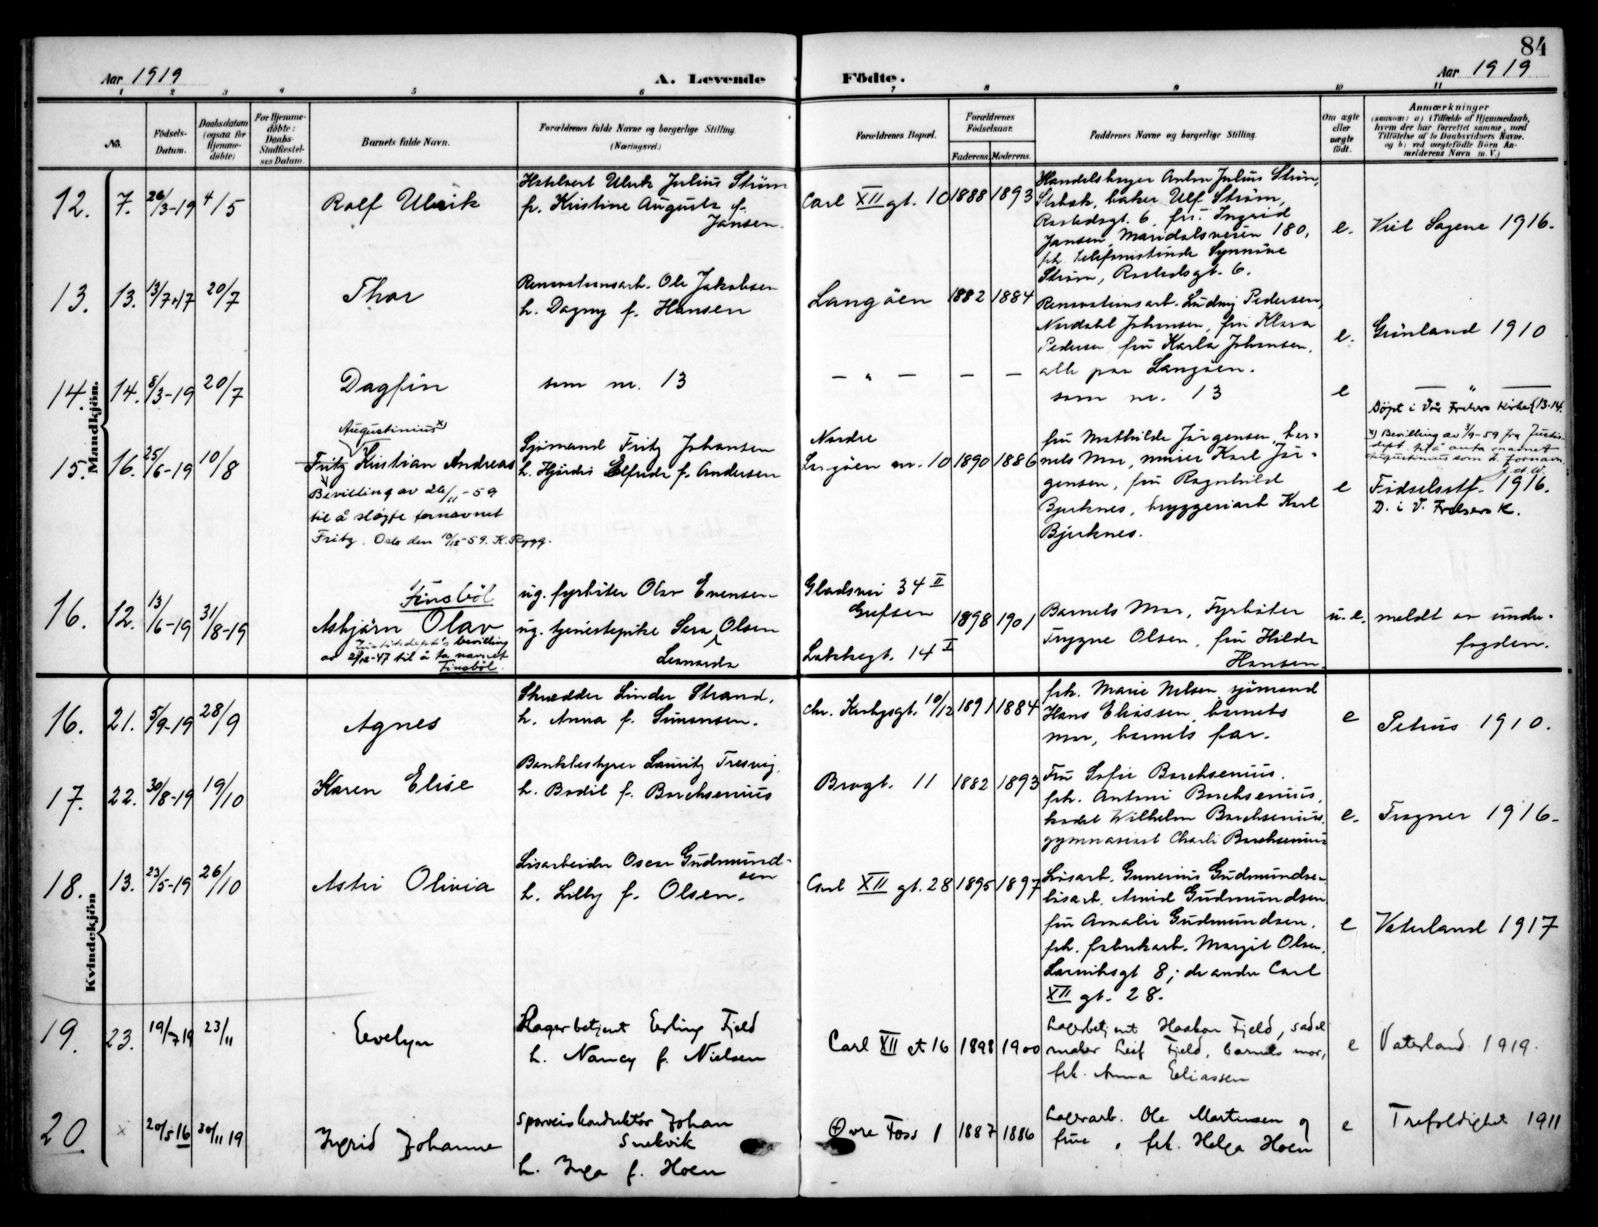 84
Aar 1919
A. Levende
Födte.
Aar 1919
1 2 3 4 5 6 7 8 9 10 11
No.
Födsels-
Datum.
Daabsdatum
(ogsaa for
Hjemme-
döbte)
For Hjemme-
döbte:
Daabs-
Stadfæstel-
ses Datum.
Barnets fulde Navn.
Forældrenes fulde Navne og borgerlige Stilling.
(Næringsvei.)
Forældrenes Bopæl.
Forældrenes
Födselsaar.
Faderens. Moderens.
Faddernes Navne og borgerlige Stilling.
Om ægte
eller
uægte
født.
Anmærkninger
Mandkjön.
12. 7. 26/3-19 4/5
Rolf Ulrik
Ulrik Julius Strøm
fr. Kristine Augusta f.
Jansen.
Carl XII gt. 10 1888 1893
Julius Strøm,
baker Ulf Strøm,
6, frk. Ingrid
Jansen, Maridalsveien 180,
frk. telefonistinde Synnöve
Strøm, 6.
e. Viet Sagene 1916.
13. 13. 13/7-17 20/7
Thor
Renovationsarb. Ole Jakobsen
h. Dagny f. Hansen
Langöen 1882 1884
Renovationsarb. Ludvig Pedersen,
Nordahl Johansen, fru Klara
Pedersen, fru Karla Johansen,
alle paa Langöen.
e. Grönland 1910
14. 14. 8/3-19 20/7
Dagfin
som nr. 13
— " — — —
som nr. 13
e — " —
Döpt i Vår Frelsers Kirke (13-14.
15. 16. 25/6-19 10/8
Augustinius x)
Fritz Kristian Andreas
Bevilling av 26/11-59
til å sløyfe fornavnet
Fritz. Oslo den 10/12-59. K. Rygg.
Sjömand Fritz Johansen
h. Hjördis Elfride f. Andersen
Nordre
Langöen nr. 10 1890 1886
fru Mathilde Jörgensen, bar-
nets Mor, murer Karl Jör-
gensen, fru Ragnhild
Bjerknes, bryggeriarb Karl
Bjerknes.
x) Bevilling av 3/9-59 fra Justis-
Augustinius som 2. fornavn
e Födselsstf. 1916.
D. i V. Frelsers K.
16. 12. 13/6-19 31/8-19
Finsböl
Asbjörn Olav
bevilling
av 21/12-47 til å ta navnet
Finsböl.
ug. fyrböter Olav Evensen
ug. tjenestepike Sara Olsen
Leonarda
Gladsvei 34 II
Grefsen
14 I
1898 1901
Barnets Mor, Fyrböter
Trygve Olsen, fru Hilda
Hansen.
u. e. meldt av under-
fogden.
Kvindekjön
16. 21. 5/9-19 28/9
Agnes
Skrædder Linder Strand,
h. Anna f. Simonsen.
Chr. Krohgsgt. 10/12 1891 1884
frk. Marie Nilsen, sjömand
Hans Eliassen, barnets
mor, barnets far.
e Petrus 1910.
17. 22. 30/8-19 19/10
Karen Elise
Bankbestyrer Lauritz Tresvig,
h. Bodil f. Borchsenius
Brogt. 11 1882 1893
Fru Sofie Borchsenius.
frk. Antoni Borchsenius,
kadet Wilhelm Borchsenius,
gymnasiast Charli Borchsenius
e. Frogner 1916.
18. 13. 23/5-19 26/10
Astri Olivia
Lisarbeider Oscar Gudmund-
sen
h. Lilly f. Olsen.
Carl XII gt. 28 1895 1897
Lisarb. Gunerius Gudmundsen
lisarb. Arvid Gudmundsen
fru Amalie Gudmundsen,
frk. fabrikarb. Margit Olsen,
Larviksgt 8; de andre Carl
XII gt. 28.
e Vaterland 1917
19. 23. 19/7 19 23/11
Evelyn
Lagerbetjent Erling Fjeld
h. Nancy f. Nielsen
Carl XII gt 16 1898 1900
Lagerbetjent Haakon Fjeld, sadel-
maker Leif Fjeld, barnets mor,
frk. Anna Eliassen
e Vaterland 1919.
20 x 20/5 16 30/11 19
Ingrid Johanne
Sporveiskonduktör Johan
Snekvik
h. Inga f. Hoen
Øvre Foss 1 1887 1886
Lagerarb. Ole Martinsen og
frue, frk. Helga Hoen
e Trefoldighet 1911